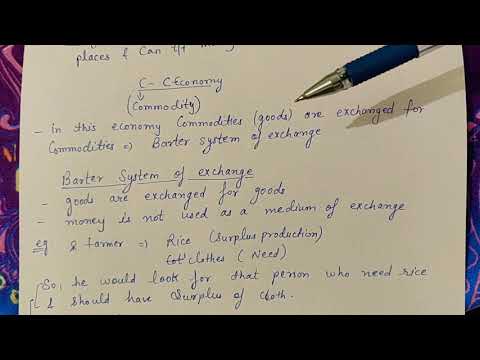 places & Can
C - C Economy
(Commodity)
- In this economy Commodities (goods) are exchanged for
Commodities => Barter system of exchange
Barter System of exchange
- goods are exchanged for goods
- money is not used as a medium of exchange
eg farmer => Rice (Surplus production)
clothes (Need)
So, he would look for that person who need rice
& should have Surplus of cloth.